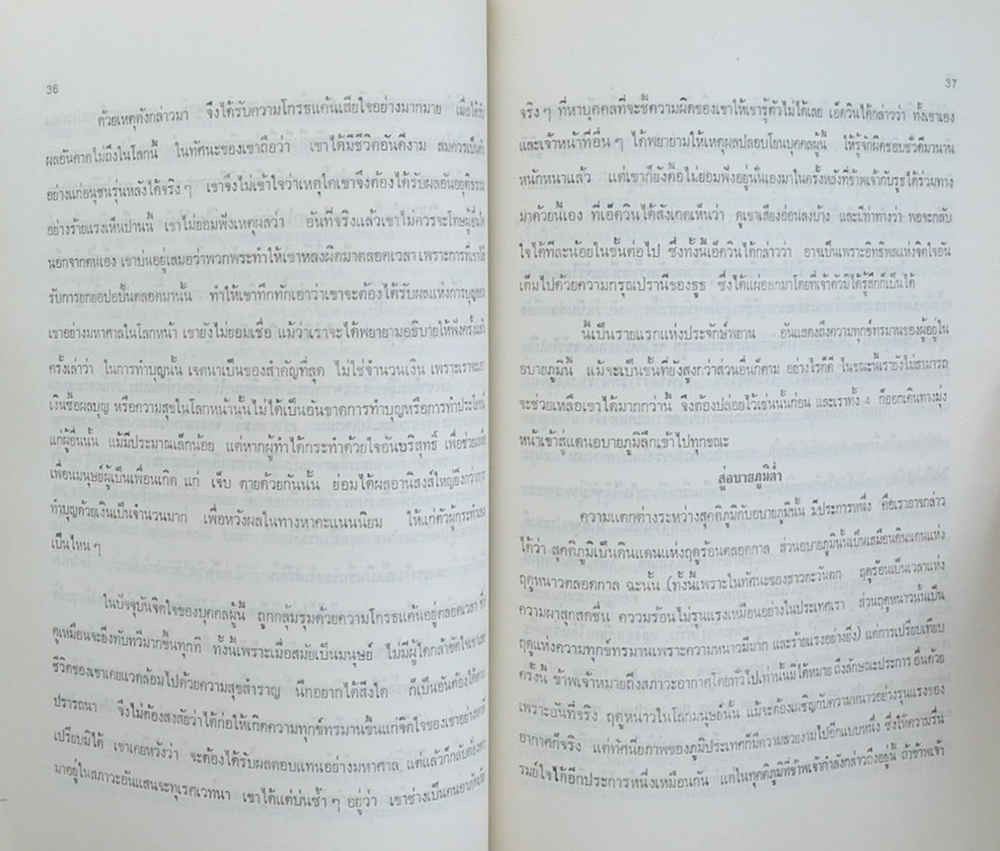 36
ด้วยเหตุดังกล่าวมา จึงได้รับความโกรธแค้นเสียใจอย่างมากมาย เมื่อได้รับ
ผลอันคาดไม่ถึงในโลกนี้ ในทัศนะของเขาถือว่า เขาได้มีชีวิตอันดีงาม สมควรเป็น
อย่างแก่อนุชนรุ่นหลังได้จริงๆ เขาจึงไม่เข้าใจว่าเหตุใดเขาจึงต้องได้รับผลอันอยุติธรรม
อย่างร้ายแรงเห็นปานนี้ เขาไม่ยอมฟังเหตุผลว่า อันที่จริงแล้วเขาไม่ควรจะโทษผู้อื่น
นอกจากตนเอง เขาบ่นอยู่เสมอว่าพวกพระทำให้เขาหลงผิดมาตลอดเวลา เพราะการที่เขาได้
รับการยกยอปอปั้นตลอดมานั้น ทำให้เขาทึกทักเอาว่าเขาจะต้องได้รับผลแห่งการบุญของ
เขาอย่างมหาศาลในโลกหน้า เขายังไม่ยอมเชื่อ แม้ว่าเราจะได้พยายามอธิบายให้ฟังครั้งแล้ว
ครั้งเล่าว่า ในการทำบุญนั้น เจตนาเป็นของสำคัญที่สุด ไม่ใช่จำนวนเงิน เพราะเราจะเอา
เงินซื้อผลบุญ หรือความสุขในโลกหน้านั้นไม่ได้เป็นอันขาดการทำบุญหรือการทำประโยชน์
แก่ผู้อื่นนั้น แม้มีประมาณเล็กน้อย แต่หากผู้ทำได้กระทำด้วยใจอันบริสุทธิ์ เพื่อช่วยเหลือ
เพื่อนมนุษย์ผู้เป็นเพื่อนเกิด แก่ เจ็บ ตายด้วยกันนั้น ย่อมได้ผลอานิสงส์ใหญ่ยิ่งกว่าการ
ทำบุญด้วยเงินเป็นจำนวนมาก เพื่อหวังผลในทางหาคะแนนนิยม ให้แก่ตัวผู้กระทำเอง
เป็นไหนๆ
ในปัจจุบันจิตใจของบุคคลผู้นี้ ถูกกลุ้มรุมด้วยความโกรธแค้นอยู่ตลอดเวลา ซึ่ง
ดูเหมือนจะยิ่งทับทวีมากขึ้นทุกที ทั้งนี้เพราะเมื่อสมัยเป็นมนุษย์ ไม่มีผู้ใดกล้าขัดใจเขาเลย
ชีวิตของเขาเคยแวดล้อมไปด้วยความสุขสำราญ นึกอยากได้สิ่งใด ก็เป็นอันต้องได้ตาม
ปรารถนา จึงไม่ต้องสงสัยว่าได้ก่อให้เกิดความทุกข์ทรมานขึ้นแก่จิตใจของเขาอย่าง
เปรียบมิได้ เขาเคยหวังว่า จะต้องได้รับผลตอบแทนอย่างมหาศาล แต่แล้วก็กลับต้อง
มาอยู่ในสภาวะอันแสนจะทุเรศเวทนา เขาได้แต่บ่นซ้ำๆ อยู่ว่า เขาช่างเป็นคนอาภัพ
37
จริงๆ ที่หาบุคคลที่จะชี้ความผิดของเขาให้เขารู้ตัวไม่ได้เลย เอ็ดวินได้กล่าวว่า ทั้งเขาเอง
และเจ้าหน้าที่อื่นๆ ได้พยายามให้เหตุผลปลอบโยนบุคคลผู้นี้ ให้รู้จักผิดชอบชั่วดีมานาน
หนักหนาแล้ว แต่เขาก็ยังดื้อไม่ยอมฟังอยู่นั่นเองมาในครั้งหลังที่ข้าพเจ้ากับรุธได้ร่วมทาง
มาด้วยนี้เอง ที่เอ็ดวินได้สังเกตเห็นว่า ดูเขาเสียงอ่อนลงบ้าง และมีท่าทางว่า พอจะกลับ
ใจได้ทีละน้อยในขั้นต่อไป ซึ่งทั้งนี้เอ็ดวินได้กล่าวว่า อาจเป็นเพราะอิทธิพลแห่งจิตใจอัน
เต็มไปด้วยความกรุณปรานีของรุธ ซึ่งได้แผ่ออกมาโดยที่เจ้าตัวมิได้รู้สึกก็เป็นได้
นี้เป็นรายแรกแห่งประจักษ์พยาน อันแสดงถึงความทุกข์ทรมานของผู้อยู่ใน
อบายภูมินี้ แม้จะเป็นชั้นที่ยังสูงกว่าส่วนอื่นก็ตาม อย่างไรก็ดี ในขณะนี้เรายังไม่สามารถ
จะช่วยเหลือเขาได้มากกว่านี้ จึงต้องปล่อยไว้เช่นนั้นก่อน และเราทั้ง 4 ก็ออกเดินทางมุ่ง
หน้าเข้าสู่แดนอบายภูมิลึกเข้าไปทุกขณะ
สู่อบายภูมิต่ำ
ความแตกต่างระหว่างสุคติภูมิกับอบายภูมินั้น มีประการหนึ่ง คือเราอาจกล่าว
ได้ว่า สุคติภูมิเป็นดินแดนแห่งฤดูร้อนตลอดกาล ส่วนอบายภูมินั้นเป็นเสมือนดินแดนแห่ง
ฤดูหนาวตลอดกาล ฉะนั้น (ทั้งนี้เพราะในทัศนะของชาวตะวันตก ฤดูร้อนเป็นเวลาแห่ง
ความผาสุกสดชื่น ความร้อนไม่รุนแรงเหมือนอย่างในประเทศเรา ส่วนฤดูหนาวนั้นเป็น
ฤดูแห่งความทุกข์ทรมานเพราะความหนาวมีมาก และร้ายแรงอย่างยิ่ง) แต่การเปรียบเทียบ
ครั้งนี้ ข้าพเจ้าหมายถึงสภาวะอากาศโดยทั่วไปเท่านั้นมิได้หมายถึงลักษณะประการอื่นด้วย
เพราะอันที่จริง ฤดูหนาวในโลกมนุษย์นั้น แม้จะต้องเผชิญกับความหนาวอย่างรุนแรงของ
อากาศก็จริง แต่ทัศนียภาพของภูมิประเทศก็มีความสวยงามไปอีกแบบหนึ่ง ซึ่งให้ความรื่น
รมย์ใจได้อีกประการหนึ่งเหมือนกัน แต่ในทุคติภูมิที่ข้าพเจ้ากำลังกล่าวถึงอยู่นี้ ถ้าข้าพเจ้า